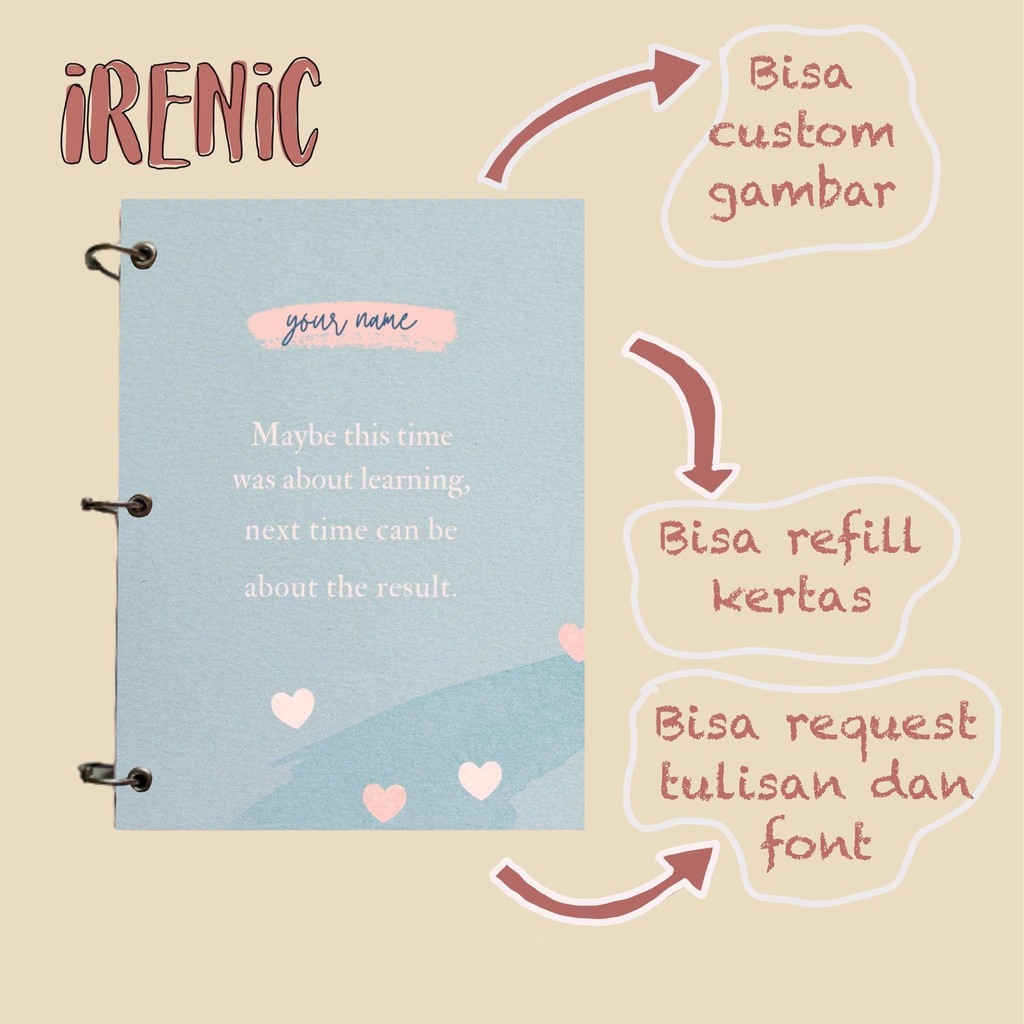 iRENiC
Bisa
custom
gambar
your name
Maybe this time
was about learning,
next time can be
about the result.
Bisa refill
kertas
Bisa request
tulisan dan
font